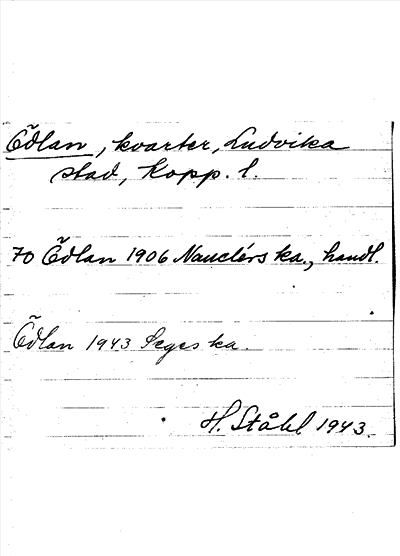 Ödlan, kvarter, Ludvika
stad, Kopp. l.
70 Ödlan 1906 Nauclérs ka., handl.
Ödlan 1943 Seges ka.
H. Ståhl 1943.